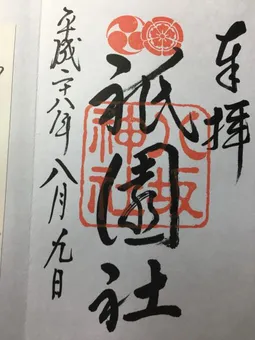 奉拝
祇園社
八坂神社
平成二十八年八月九日